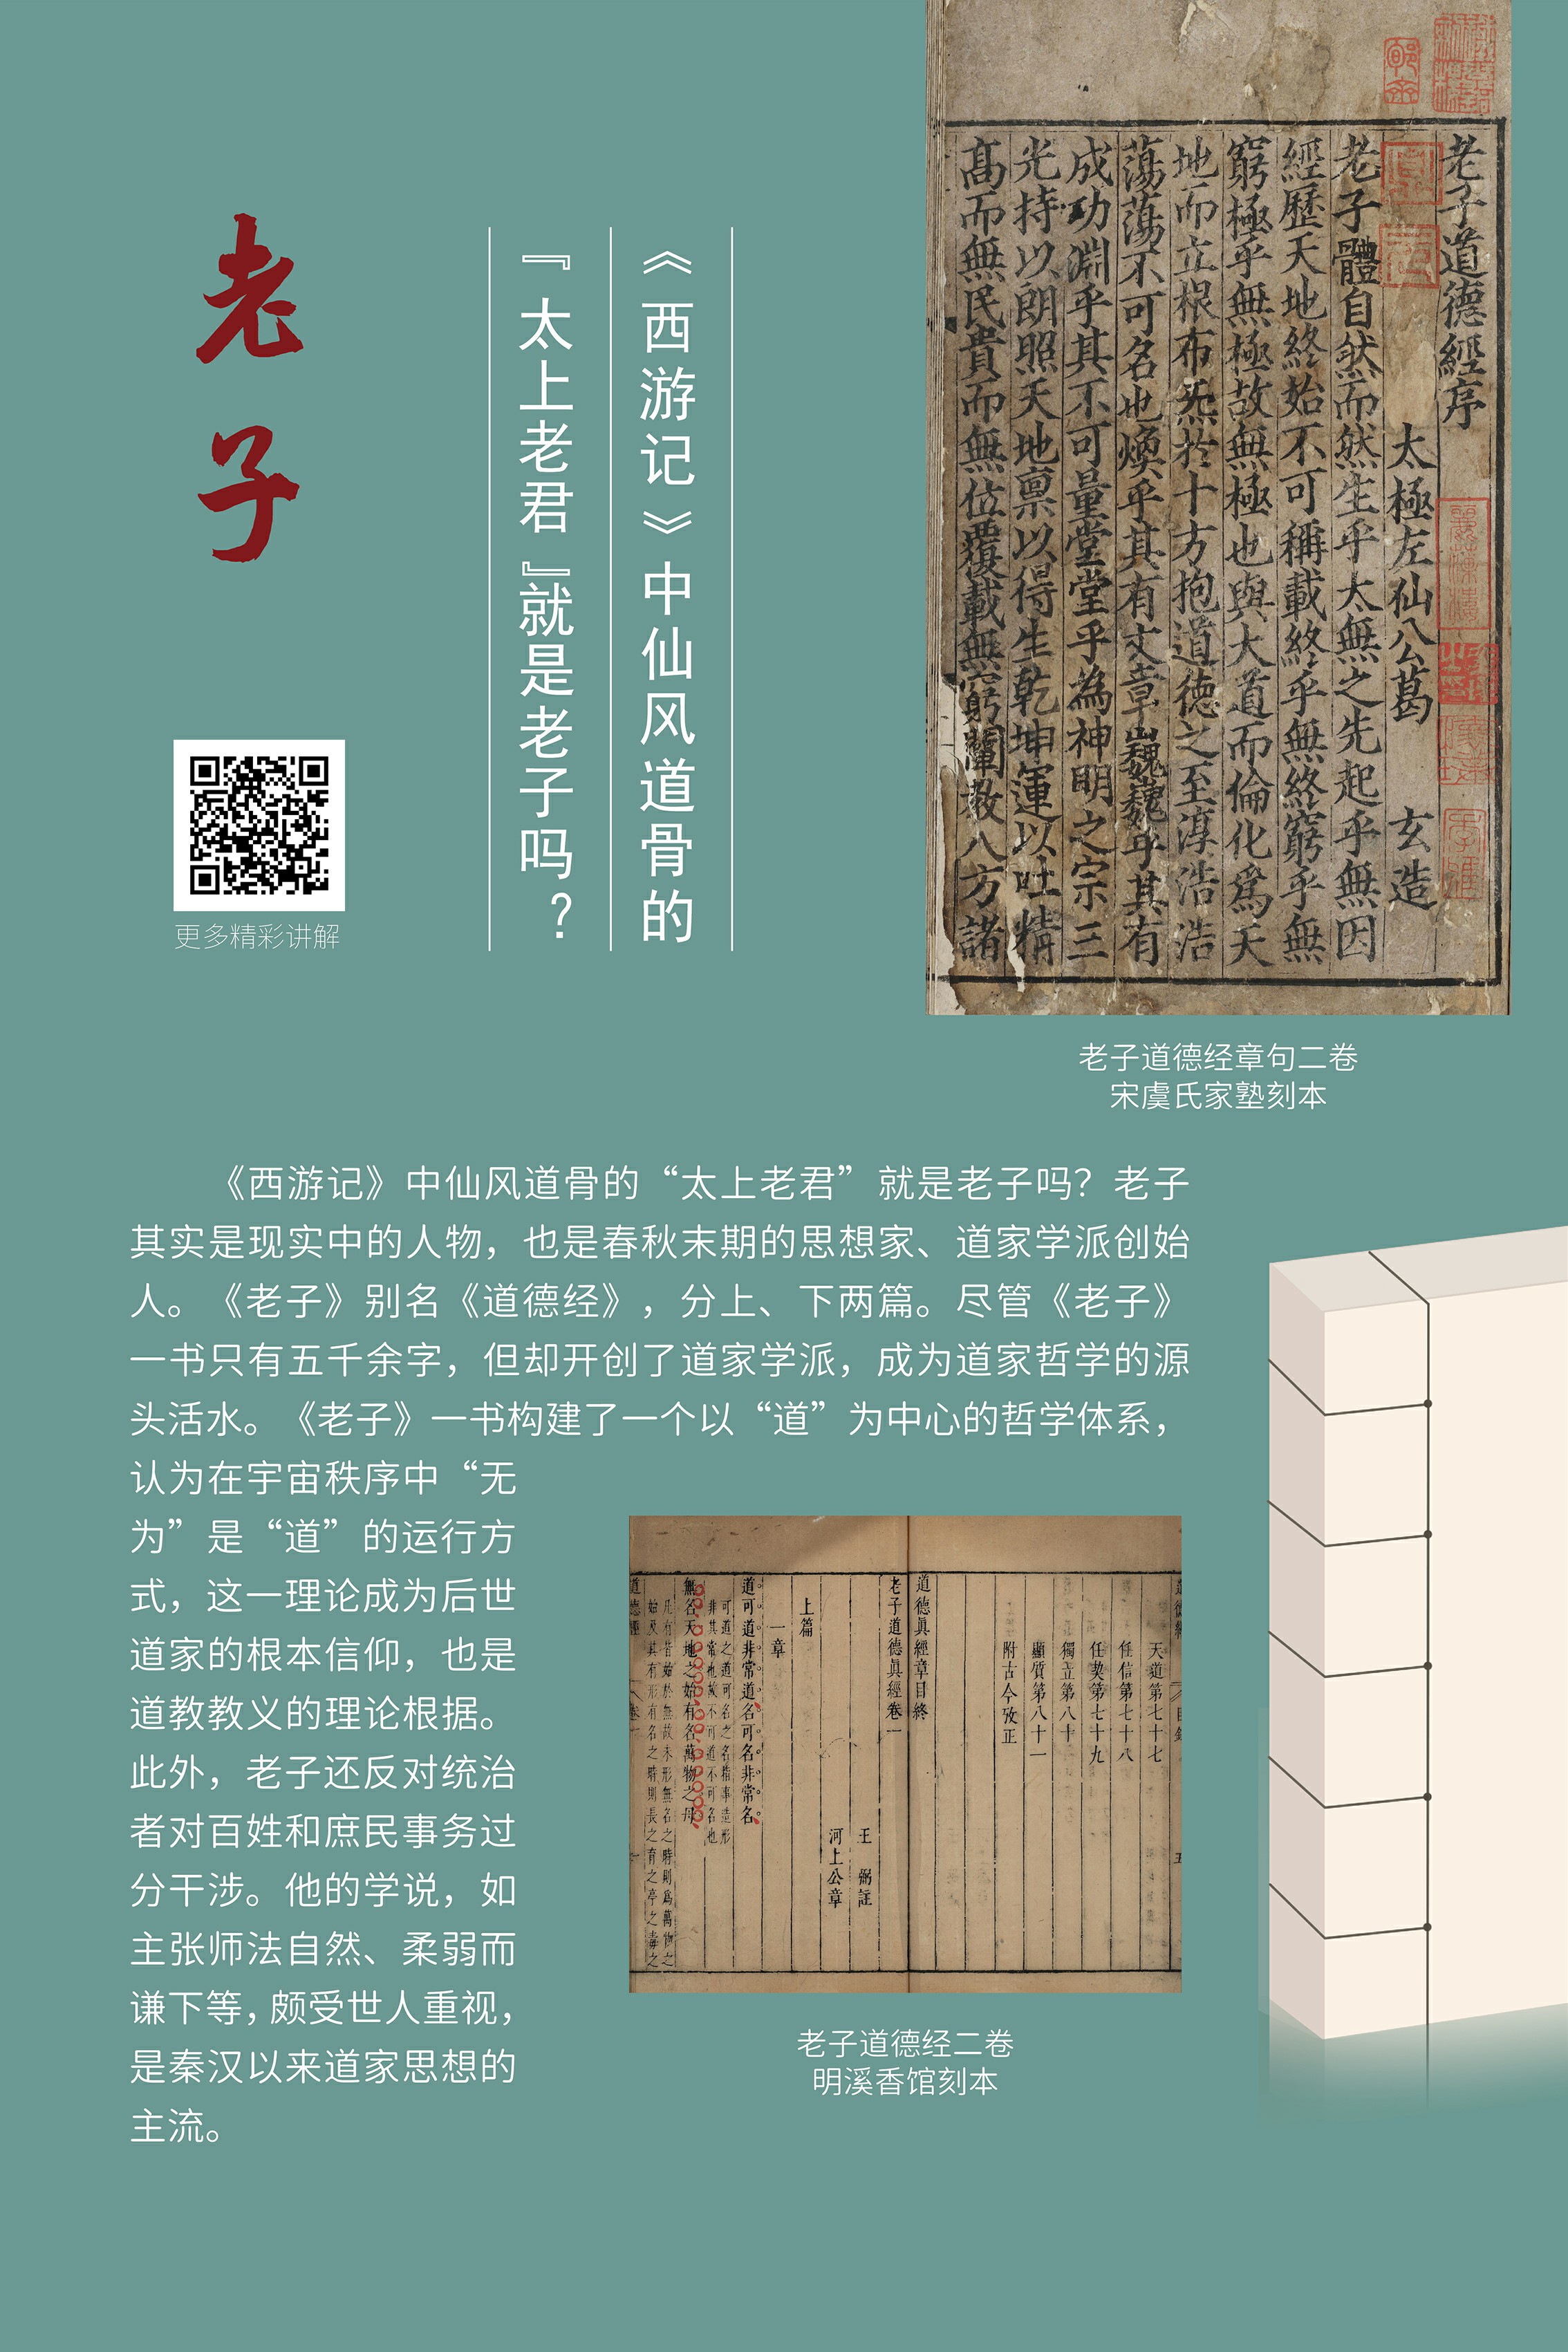 老子
《西游记》中仙风道骨的
『太上老君』就是老子吗？
更多精彩讲解
老子道德經序
太極左仙公葛玄造
老子體自然而然生乎太無之先起乎無因
經歷天地終始不可稱載終乎無終窮乎無
窮極乎無極故無極也與大道而倫化爲天
地而立根布炁於十方抱道德之至淳浩浩
蕩蕩不可名也煥乎其有文章巍巍乎其有
成功淵乎其不可量堂堂乎為神明之宗三
光持以朗照天地禀以得生乾坤運以吐精
高而無民貴而無位覆載無窮闡教八方諸
老子道德经章句二卷
宋虞氏家塾刻本
《西游记》中仙风道骨的“太上老君”就是老子吗？老子
其实是现实中的人物，也是春秋末期的思想家、道家学派创始
人。《老子》别名《道德经》，分上、下两篇。尽管《老子》
一书只有五千余字，但却开创了道家学派，成为道家哲学的源
头活水。《老子》一书构建了一个以“道”为中心的哲学体系，
认为在宇宙秩序中“无
为”是“道”的运行方
式，这一理论成为后世
道家的根本信仰，也是
道教教义的理论根据。
此外，老子还反对统治
者对百姓和庶民事务过
分干涉。他的学说，如
主张师法自然、柔弱而
谦下等，颇受世人重视，
是秦汉以来道家思想的
主流。
天道第七十七
任信第七十八
任契第七十九
獨立第八十
顯質第八十一
附古今攷正
道德眞經章目終
老子道德眞經卷一
王弼註
河上公章
上篇
一章
道可道非常道名可名非常名
可道之道可名之名指事造形
非其常也故不可道不可名也
無名天地之始有名萬物之母
凡有皆始於無故未形無名之時則爲萬物之
始及其有形有名之時則長之育之亭之毒之
老子道德经二卷
明溪香馆刻本